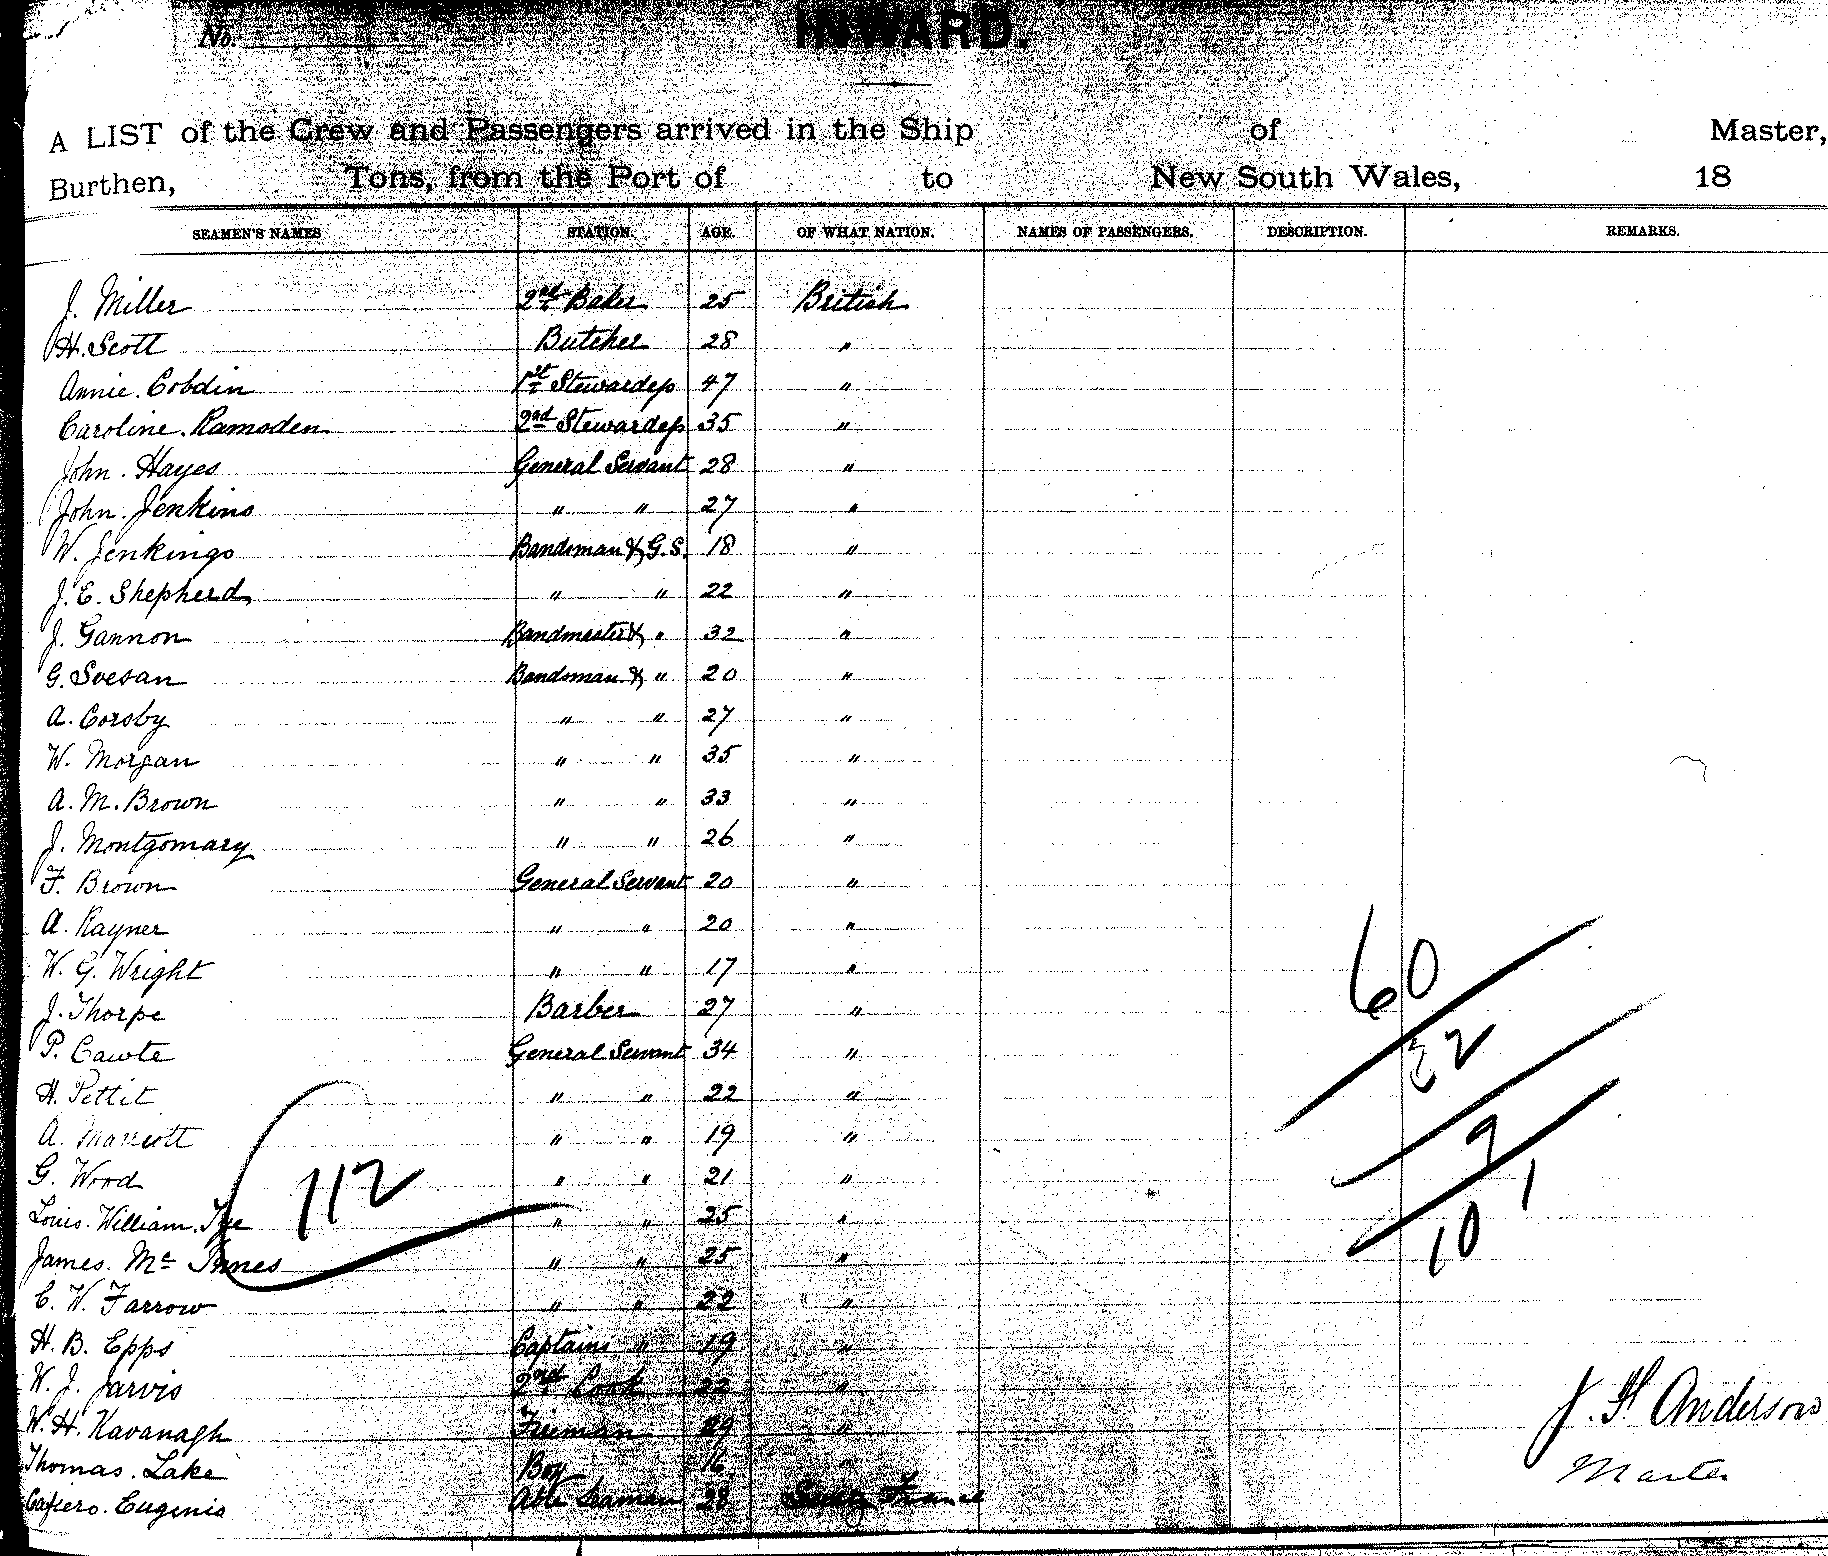 No.
INWARD.
A LIST of the Crew and Passengers arrived in the Ship of Master,
Burthen, Tons, from the Port of to New South Wales, 18
SEAMEN'S NAMES STATION. AGE. OF WHAT NATION. NAMES OF PASSENGERS. DESCRIPTION. REMARKS.
J. Miller 2nd Baker 25 British
H. Scott Butcher 28 "
Annie. Cobdin 1st Stewardess 47 "
Caroline. Ramsden 2nd Stewardess 35 "
John. Hayes General Servant 28 "
John. Jenkins " " 27 "
W. Jenkings Bandsman & G.S. 18 "
J. E. Shepherd " " 22 "
J. Gannon Bandmaster & " 32 "
G. Svesan Bandsman & " 20 "
A. Corsby " " 27 "
W. Morgan " " 35 "
A. M. Brown " " 33 "
J. Montgomary " " 26 "
F. Brown General Servant 20 "
A. Rayner " " 20 "
W. G. Wright " " 17 "
J. Thorpe Barber 27 "
P. Cawte General Servant 34 "
H. Pettit " " 22 "
A. Marriott " " 19 "
G. Wood " " 21 "
Louis. William. Tye " " 25 "
James. Mc Innes " " 25 "
C. W. Farrow " " 22 "
H. B. Epps Captains " 19 "
W. J. Jarvis 2nd Cook 22 "
W. H. Kavanagh Fireman 29 "
Thomas. Lake Boy 16 "
Cafiero. Eugenio Able Seaman 28 France
112
60
32
9
1
10
J. F. Anderson
Master